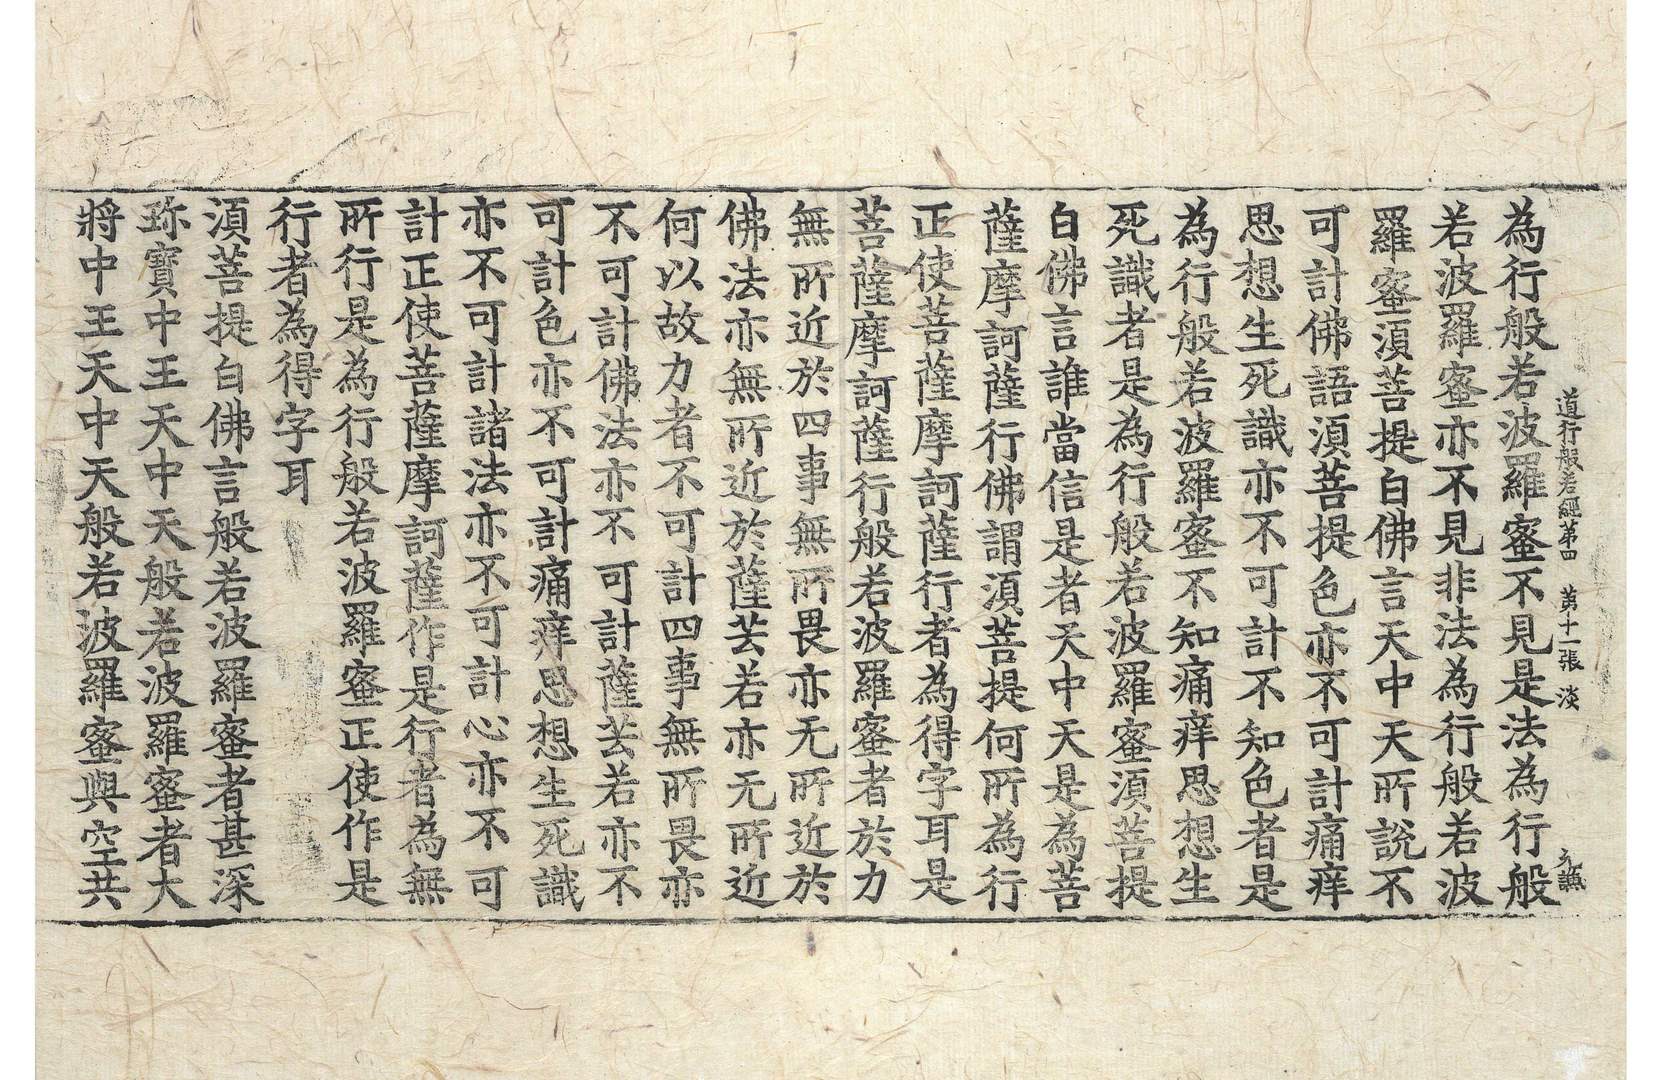 道行般若經第四 第十一張 淡
為行般若波羅蜜不見是法為行般
若波羅蜜亦不見非法為行般若波
羅蜜湏菩提白佛言天中天所說不
可計佛語湏菩提色亦不可計痛痒
思想生死識亦不可計不知色者是
為行般若波羅蜜不知痛痒思想生
死識者是為行般若波羅蜜湏菩提
白佛言誰當信是者天中天是為菩
薩摩訶薩行佛謂湏菩提何所為行
正使菩薩摩訶薩行者為得字耳是
菩薩摩訶薩行般若波羅蜜者於力
無所近於四事無所畏亦无所近於
佛法亦無所近於薩芸若亦无所近
何以故力者不可計四事無所畏亦
不可計佛法亦不可計薩芸若亦不
可計色亦不可計痛痒思想生死識
亦不可計諸法亦不可計心亦不可
計正使菩薩摩訶薩作是行者為無
所行是為行般若波羅蜜正使作是
行者為得字耳
湏菩提白佛言般若波羅蜜者甚深
珎寶中王天中天般若波羅蜜者大
將中王天中天般若波羅蜜與空共